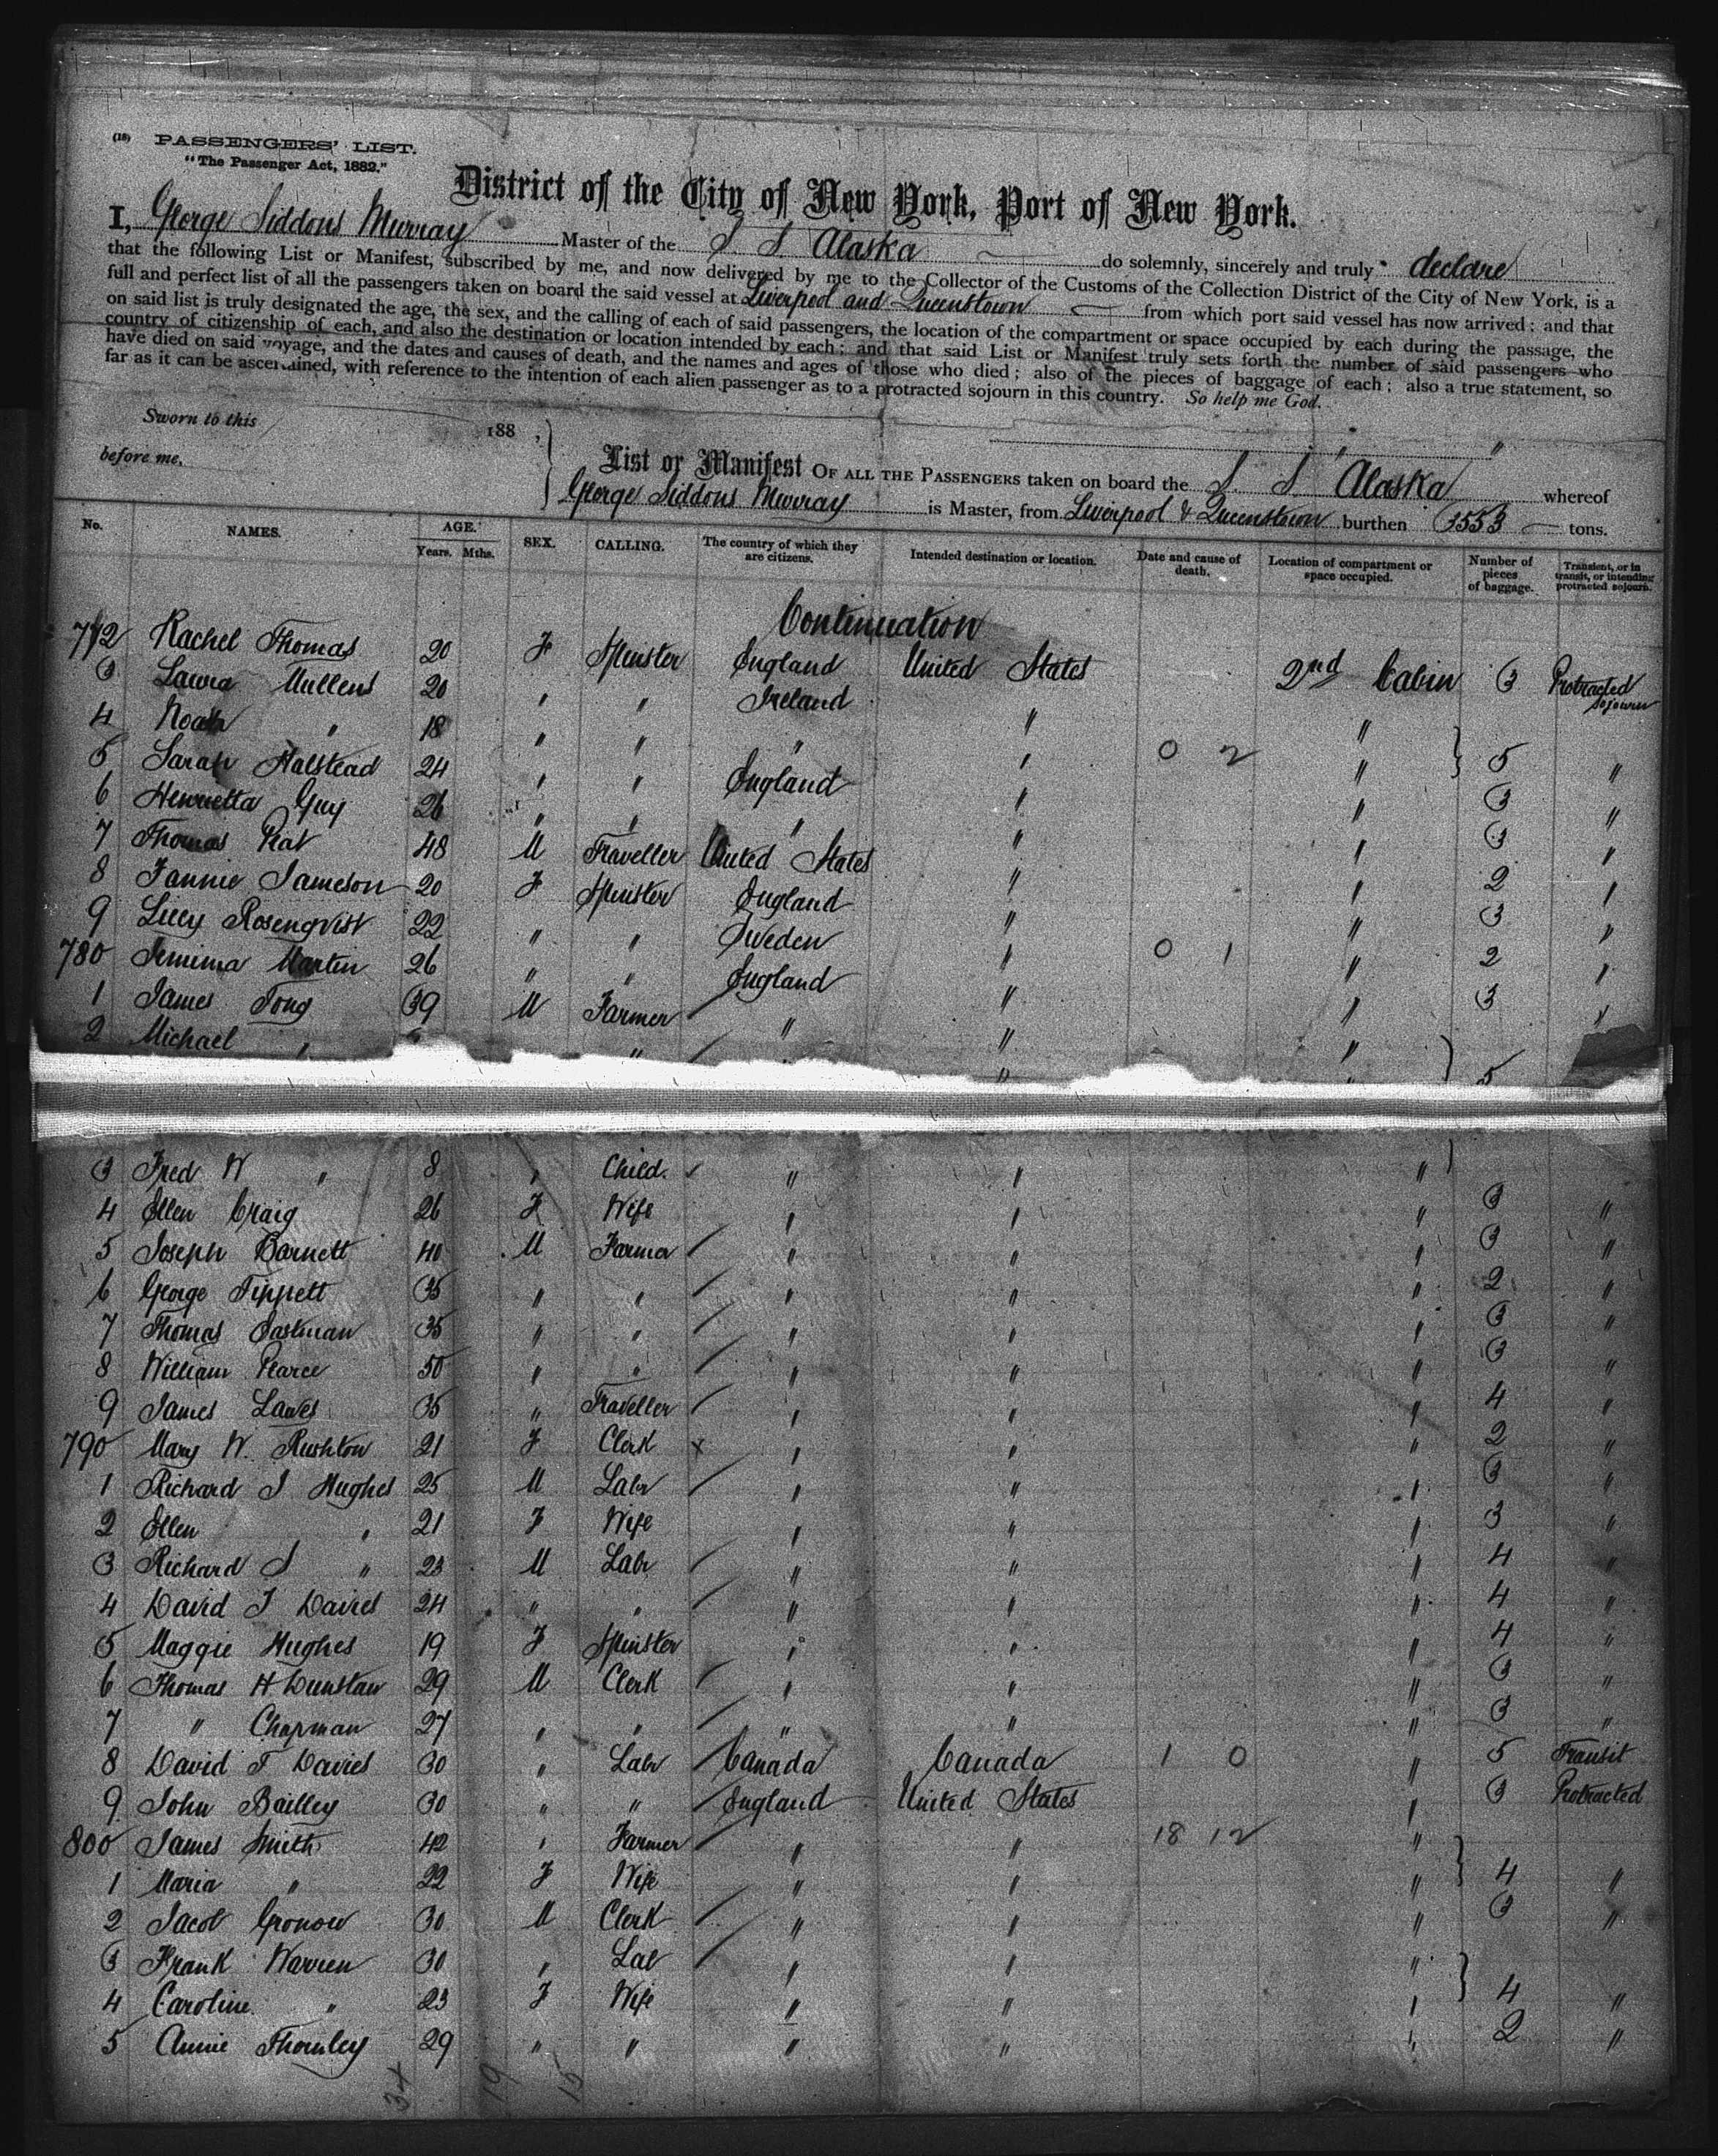 (18) PASSENGERS' LIST.
"The Passenger Act, 1882."
District of the City of New York, Port of New York.
I, George Siddons Murray Master of the S. S. Alaska do solemnly, sincerely and truly declare
that the following List or Manifest, subscribed by me, and now delivered by me to the Collector of the Customs of the Collection District of the City of New York, is a
full and perfect list of all the passengers taken on board the said vessel at Liverpool and Queenstown from which port said vessel has now arrived: and that
on said list is truly designated the age, the sex, and the calling of each of said passengers, the location of the compartment or space occupied by each during the passage, the
country of citizenship of each, and also the destination or location intended by each; and that said List or Manifest truly sets forth the number of said passengers who
have died on said voyage, and the dates and causes of death, and the names and ages of those who died; also of the pieces of baggage of each; also a true statement, so
far as it can be ascertained, with reference to the intention of each alien passenger as to a protracted sojourn in this country. So help me God.
Sworn to this 188 ,
before me.
List or Manifest OF ALL THE PASSENGERS taken on board the S. S Alaska whereof
George Siddons Murray is Master, from Liverpool & Queenstown burthen 3553 tons.
No. NAMES. AGE. Years. Mths. SEX. CALLING. The country of which they are citizens. Intended destination or location. Date and cause of death. Location of compartment or space occupied. Number of pieces of baggage. Transient, or in transit, or intending protracted sojourn.
Continuation
772 Rachel Thomas 20 F Spinster England United States 2nd Cabin 3 Protracted sojourn
3 Laura Mullens 20 " " Ireland " "
4 Noah " 18 " " " " 0 2 " 5 "
5 Sarah Halstead 24 " " England " " 3 "
6 Henrietta Guy 26 " " " " " 3 "
7 Thomas Peat 48 M Traveller United States " " 2 "
8 Fannie Jameson 20 F Spinster England " " 3 "
9 Lilly Rosenqvist 22 " " Sweden " 0 1 " 2 "
780 Jemima Martin 26 " " England " " 3 "
1 James Tong 39 M Farmer " " "
2 Michael " " " " 5
3 Fred W " 8 " Child. " " "
4 Ellen Craig 26 F Wife " " " 3 "
5 Joseph Barnett 40 M Farmer " " " 3 "
6 George Tippett 35 " " " " " 2 "
7 Thomas Eastman 35 " " " " " 3 "
8 William Pearce 50 " " " " " 3 "
9 James Lawes 35 " Traveller " " " 4 "
790 Mary W. Rushton 21 F Clerk x " " " 2 "
1 Richard J Hughes 25 M Labr " " " 3 "
2 Ellen " 21 F Wife " " " 3 "
3 Richard S " 23 M Labr " " " 4 "
4 David J Davies 24 " " " " " 4 "
5 Maggie Hughes 19 F Spinster " " " 4 "
6 Thomas H Dunstan 29 M Clerk " " " 3 "
7 " Chapman 27 " " " " " 3 "
8 David T Davies 30 " Labr Canada Canada 1 0 " 5 Transit
9 John Bailley 30 " " England United States " 3 Protracted
800 James Smith 42 " Farmer " " 18 12 "
1 Maria " 22 F Wife " " " 4 "
2 Jacob Gronow 30 M Clerk " " " 3 "
3 Frank Warren 30 " Lab " " "
4 Caroline " 23 F Wife " " " 4 "
5 Annie Thornley 29 " " " " " 2 "
34 19 15